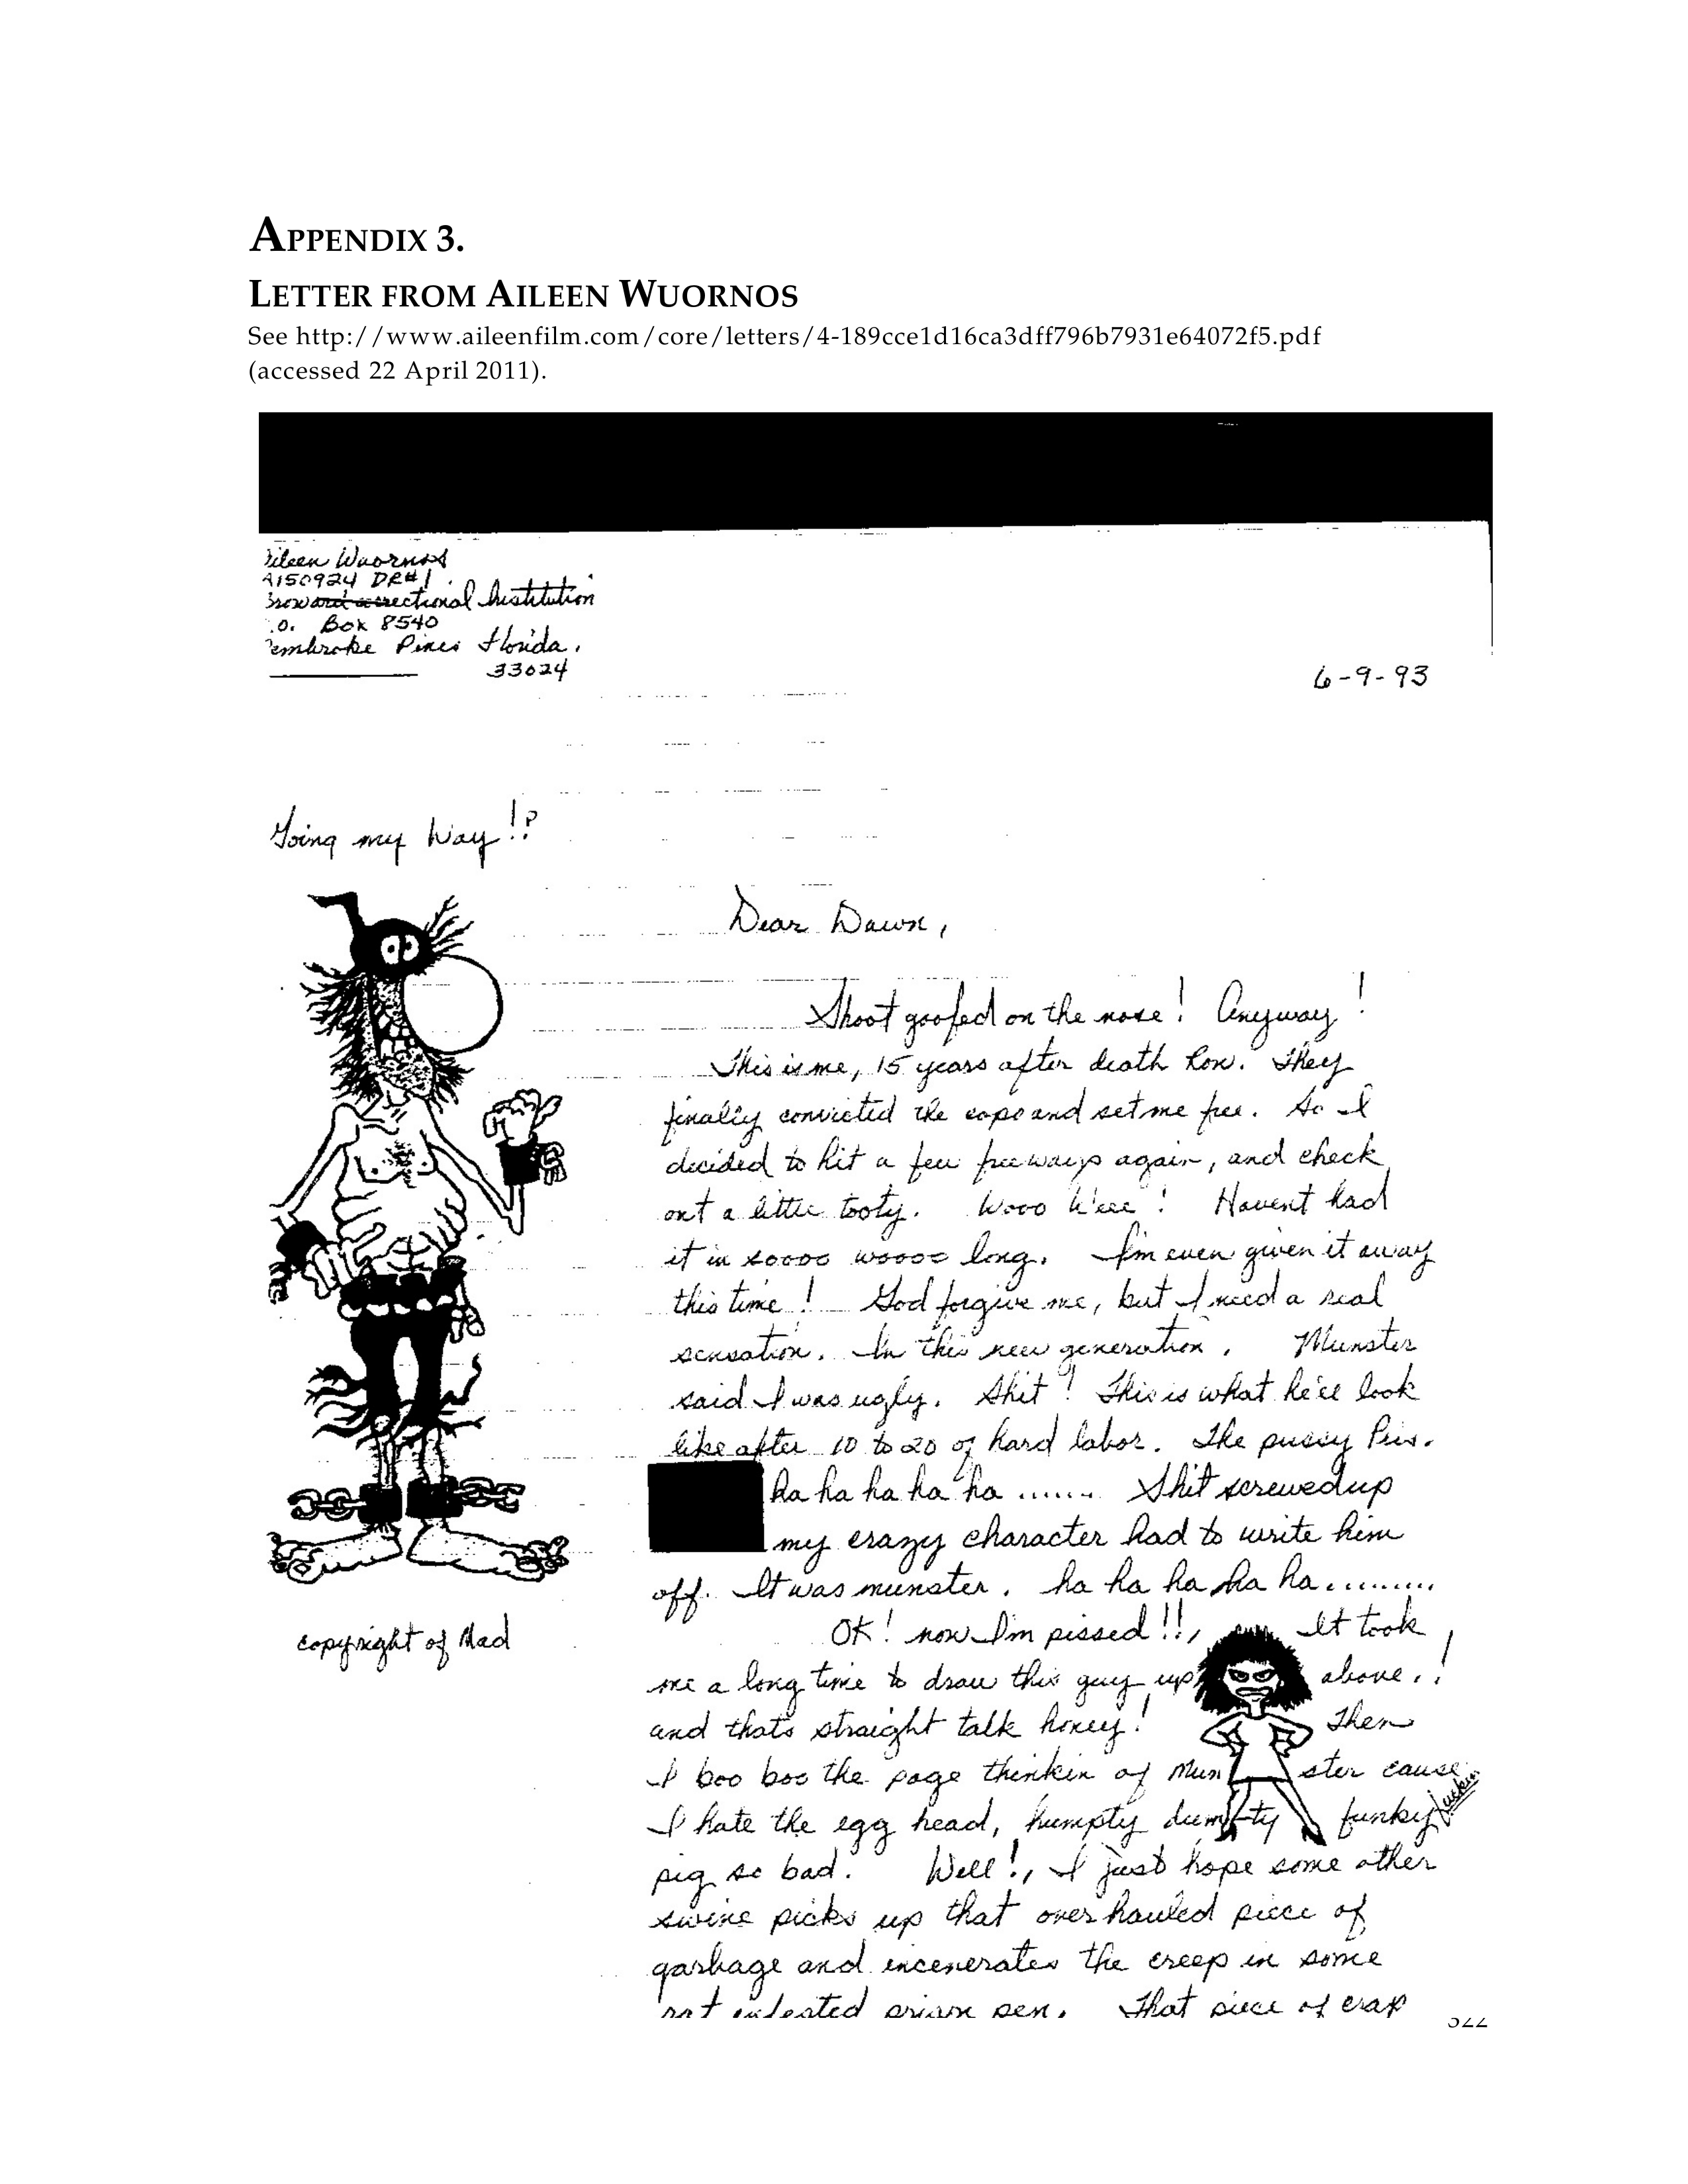 APPENDIX 3.
LETTER FROM AILEEN WUORNOS
See http://www.aileenfilm.com/core/letters/4-189cce1d16ca3dff796b7931e64072f5.pdf
(accessed 22 April 2011).
ileen Wuornos
A150924 DR#1
Broward correctional Institution
.O. Box 8540
Pembroke Pines Florida,
33024
6-9-93
Going my way!?
Dear Dawn,
Shoot goofed on the nose! Anyway!
This is me, 15 years after death Row. They
finally convicted the cops and set me free. So I
decided to hit a few freeways again, and check
out a little tooty. Wooo W'eee! Havent had
it in soooo woooo long. I'm even given it away
this time! God forgive me, but I need a real
sensation. In this new generation. Munster
said I was ugly. Shit! This is what he'll look
like after 10 to 20 of hard labor. The pussy Pris.
ha ha ha ha ha ...... Shit screwed up
my crazy character had to write him
off. It was munster. ha ha ha ha ha.........
OK! now I'm pissed!!, It took
me a long time to draw this guy up above..!
and thats straight talk honey! Then
I boo boo the page thinkin of Mun ster cause
I hate the egg head, humpty dumpty funky fuckin
pig so bad. Well!, I just hope some other
swine picks up that over hauled piece of
garbage and incenerates the creep in some
rat infested prison pen. That piece of crap
copyright of Mad
322